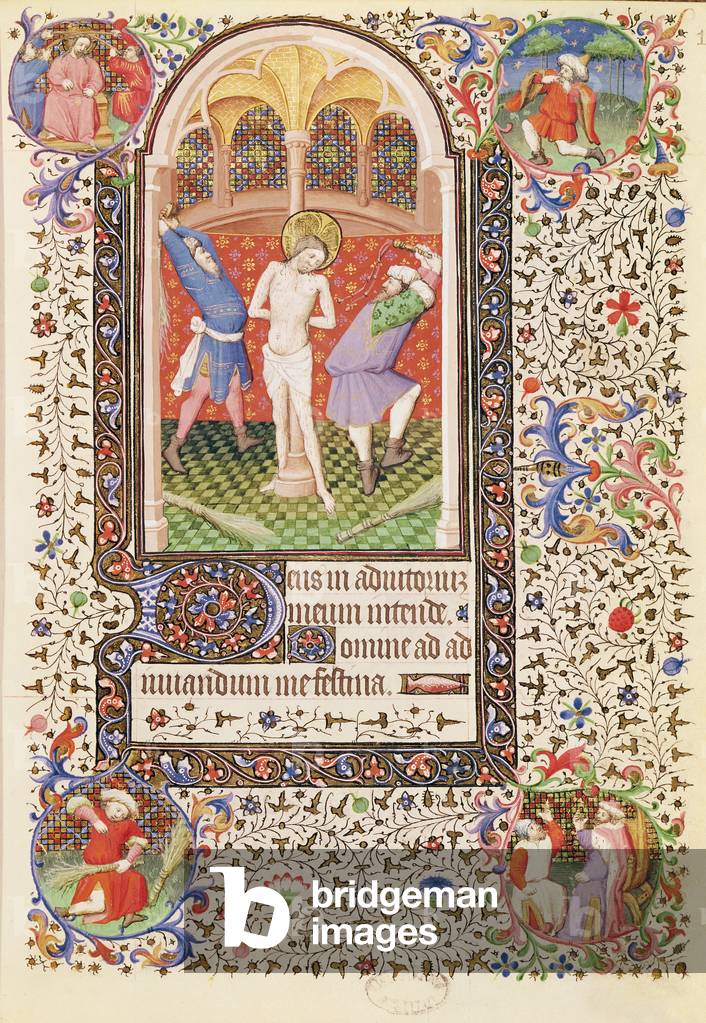 Deus in adiutorium
meum intende.
Domine ad ad
iuuandum me festina.
b bridgeman
images